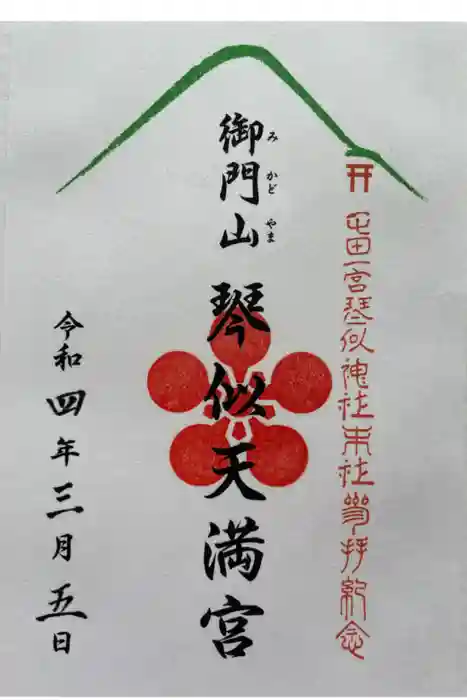 屯田一宮琴似神社末社參拝紀念
御門山 琴似天満宮
みかどやま
令和四年三月五日